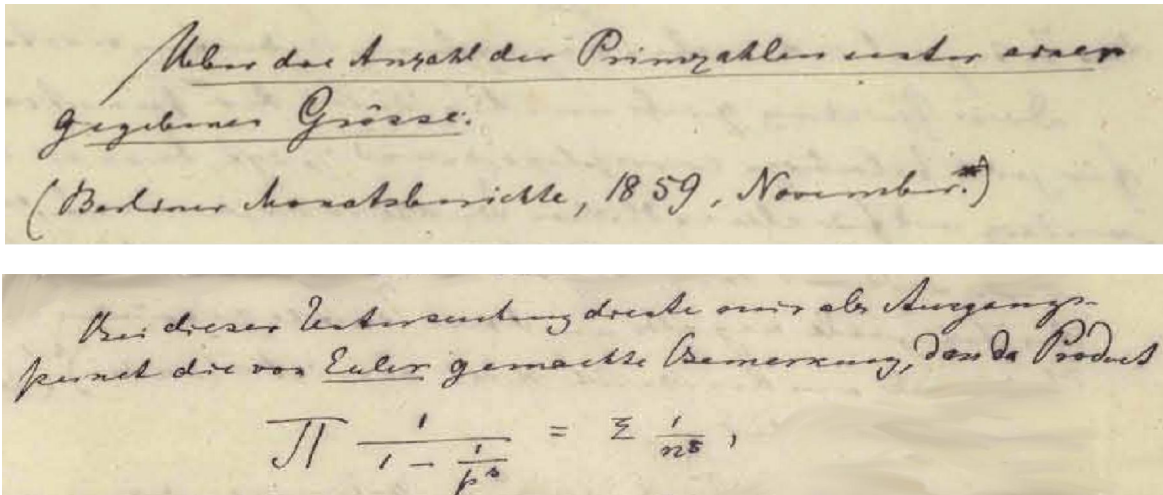 Ueber die Anzahl der Primzahlen unter einer
gegebenen Grösse.
(Berliner Monatsberichte, 1859, November.*)
Bei dieser Untersuchung diente mir als Ausgangs-
punct die von Euler gemachte Bemerkung, dass das Product
∏ 1/(1 − 1/p^s) = Σ 1/n^s,